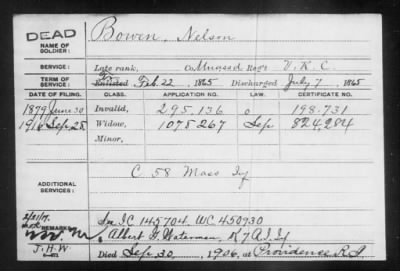 DEAD
NAME OF SOLDIER:
Bowen, Nelson
SERVICE:
Late rank, Co. Unassd Reg't V.R.C.
TERM OF SERVICE:
Enlisted Feb. 22, 1865 Discharged July 7, 1865
DATE OF FILING. CLASS. APPLICATION NO. LAW. CERTIFICATE NO.
1879 June 30 Invalid, 295.136 198.731
Sep. 28 Widow, 1075267 824,284
Minor,
C. 58 Mass Inf
ADDITIONAL SERVICES:
REMARKS:
In IC 145704. WC 450730
Albert Waterman, K 7 R.I. Inf
J.H.W.
Died Sep. 30, 1906, at Providence R.I.